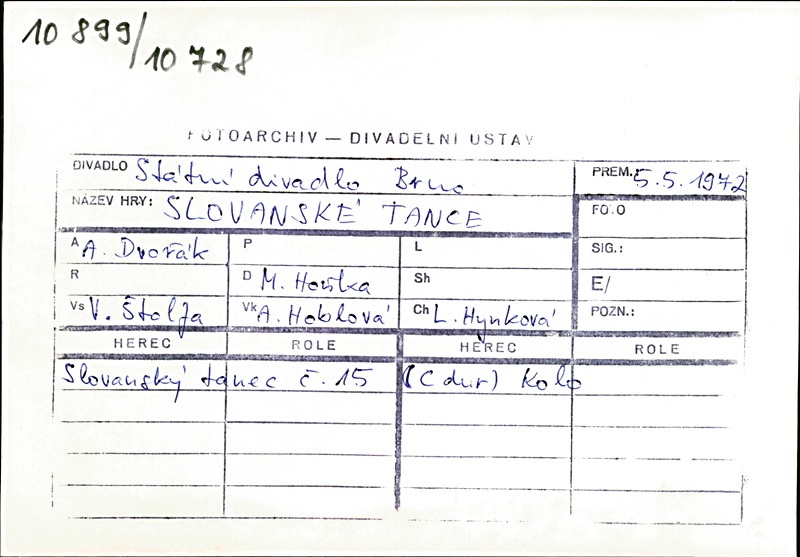 10 899/10 728
FOTOARCHIV — DIVADELNÍ ÚSTAV
DIVADLO Státní divadlo Brno PREM.: 5.5.1972
NÁZEV HRY: SLOVANSKÉ TANCE FO.O
A A. Dvořák P L SIG.:
R D M. Hoňka Sh E/
Vs V. Štolfa Vk A. Hoblová Ch L. Hynková POZN.:
HEREC ROLE HEREC ROLE
Slovanský tanec č. 15 (C dur) Kolo